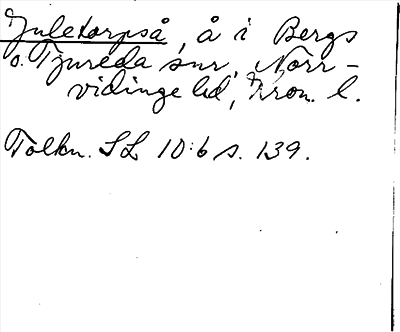 Juletorpså, å i Bergs
o. Tjureda snr, Norr-
vidinge hd, Kron. l.
Tolkn. SL 10:6 s. 139.